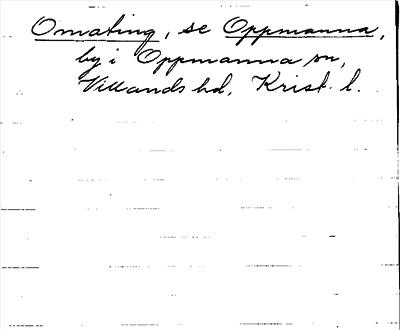 Omating, se Oppmanna,
by i Oppmanna sn,
Villands hd, Krist. l.